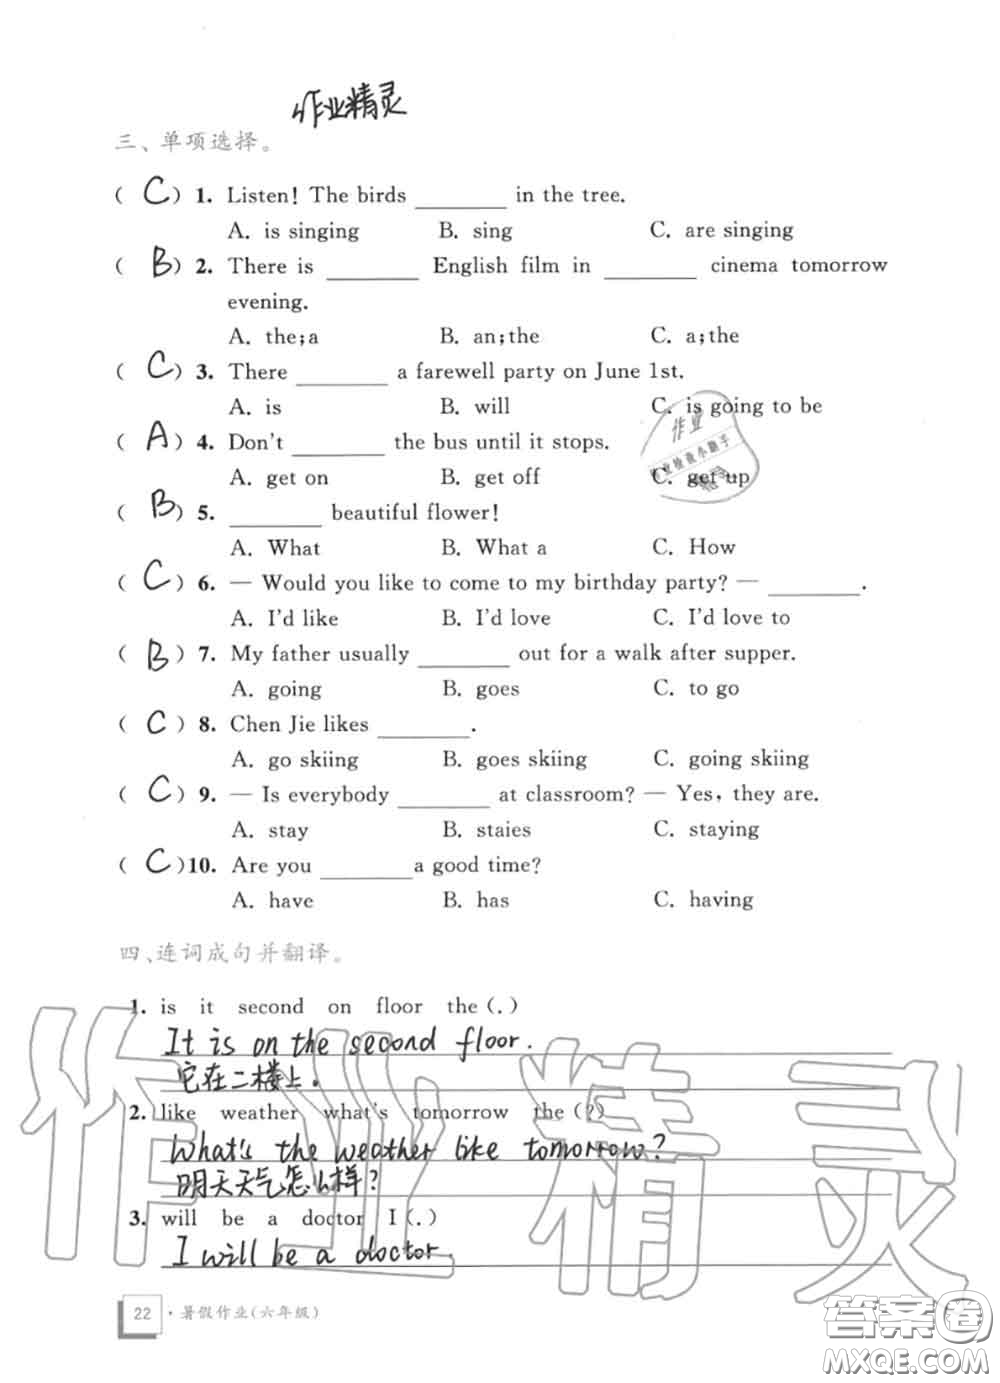 作业精灵
三、单项选择。
( C ) 1. Listen! The birds ________ in the tree.
A. is singing B. sing C. are singing
( B ) 2. There is ________ English film in ________ cinema tomorrow
evening.
A. the;a B. an;the C. a;the
( C ) 3. There ________ a farewell party on June 1st.
A. is B. will C. is going to be
( A ) 4. Don't ________ the bus until it stops.
A. get on B. get off C. get up
( B ) 5. ________ beautiful flower!
A. What B. What a C. How
( C ) 6. — Would you like to come to my birthday party? — ________.
A. I'd like B. I'd love C. I'd love to
( B ) 7. My father usually ________ out for a walk after supper.
A. going B. goes C. to go
( C ) 8. Chen Jie likes ________.
A. go skiing B. goes skiing C. going skiing
( C ) 9. — Is everybody ________ at classroom? — Yes, they are.
A. stay B. staies C. staying
( C )10. Are you ________ a good time?
A. have B. has C. having
四、连词成句并翻译。
1. is it second on floor the (.)
It is on the second floor.
它在二楼上.
2. like weather what's tomorrow the (?)
What's the weather like tomorrow?
明天天气怎么样?
3. will be a doctor I (.)
I will be a doctor.
作业精灵
22 · 暑假作业(六年级)
答案圈
MXQE.COM